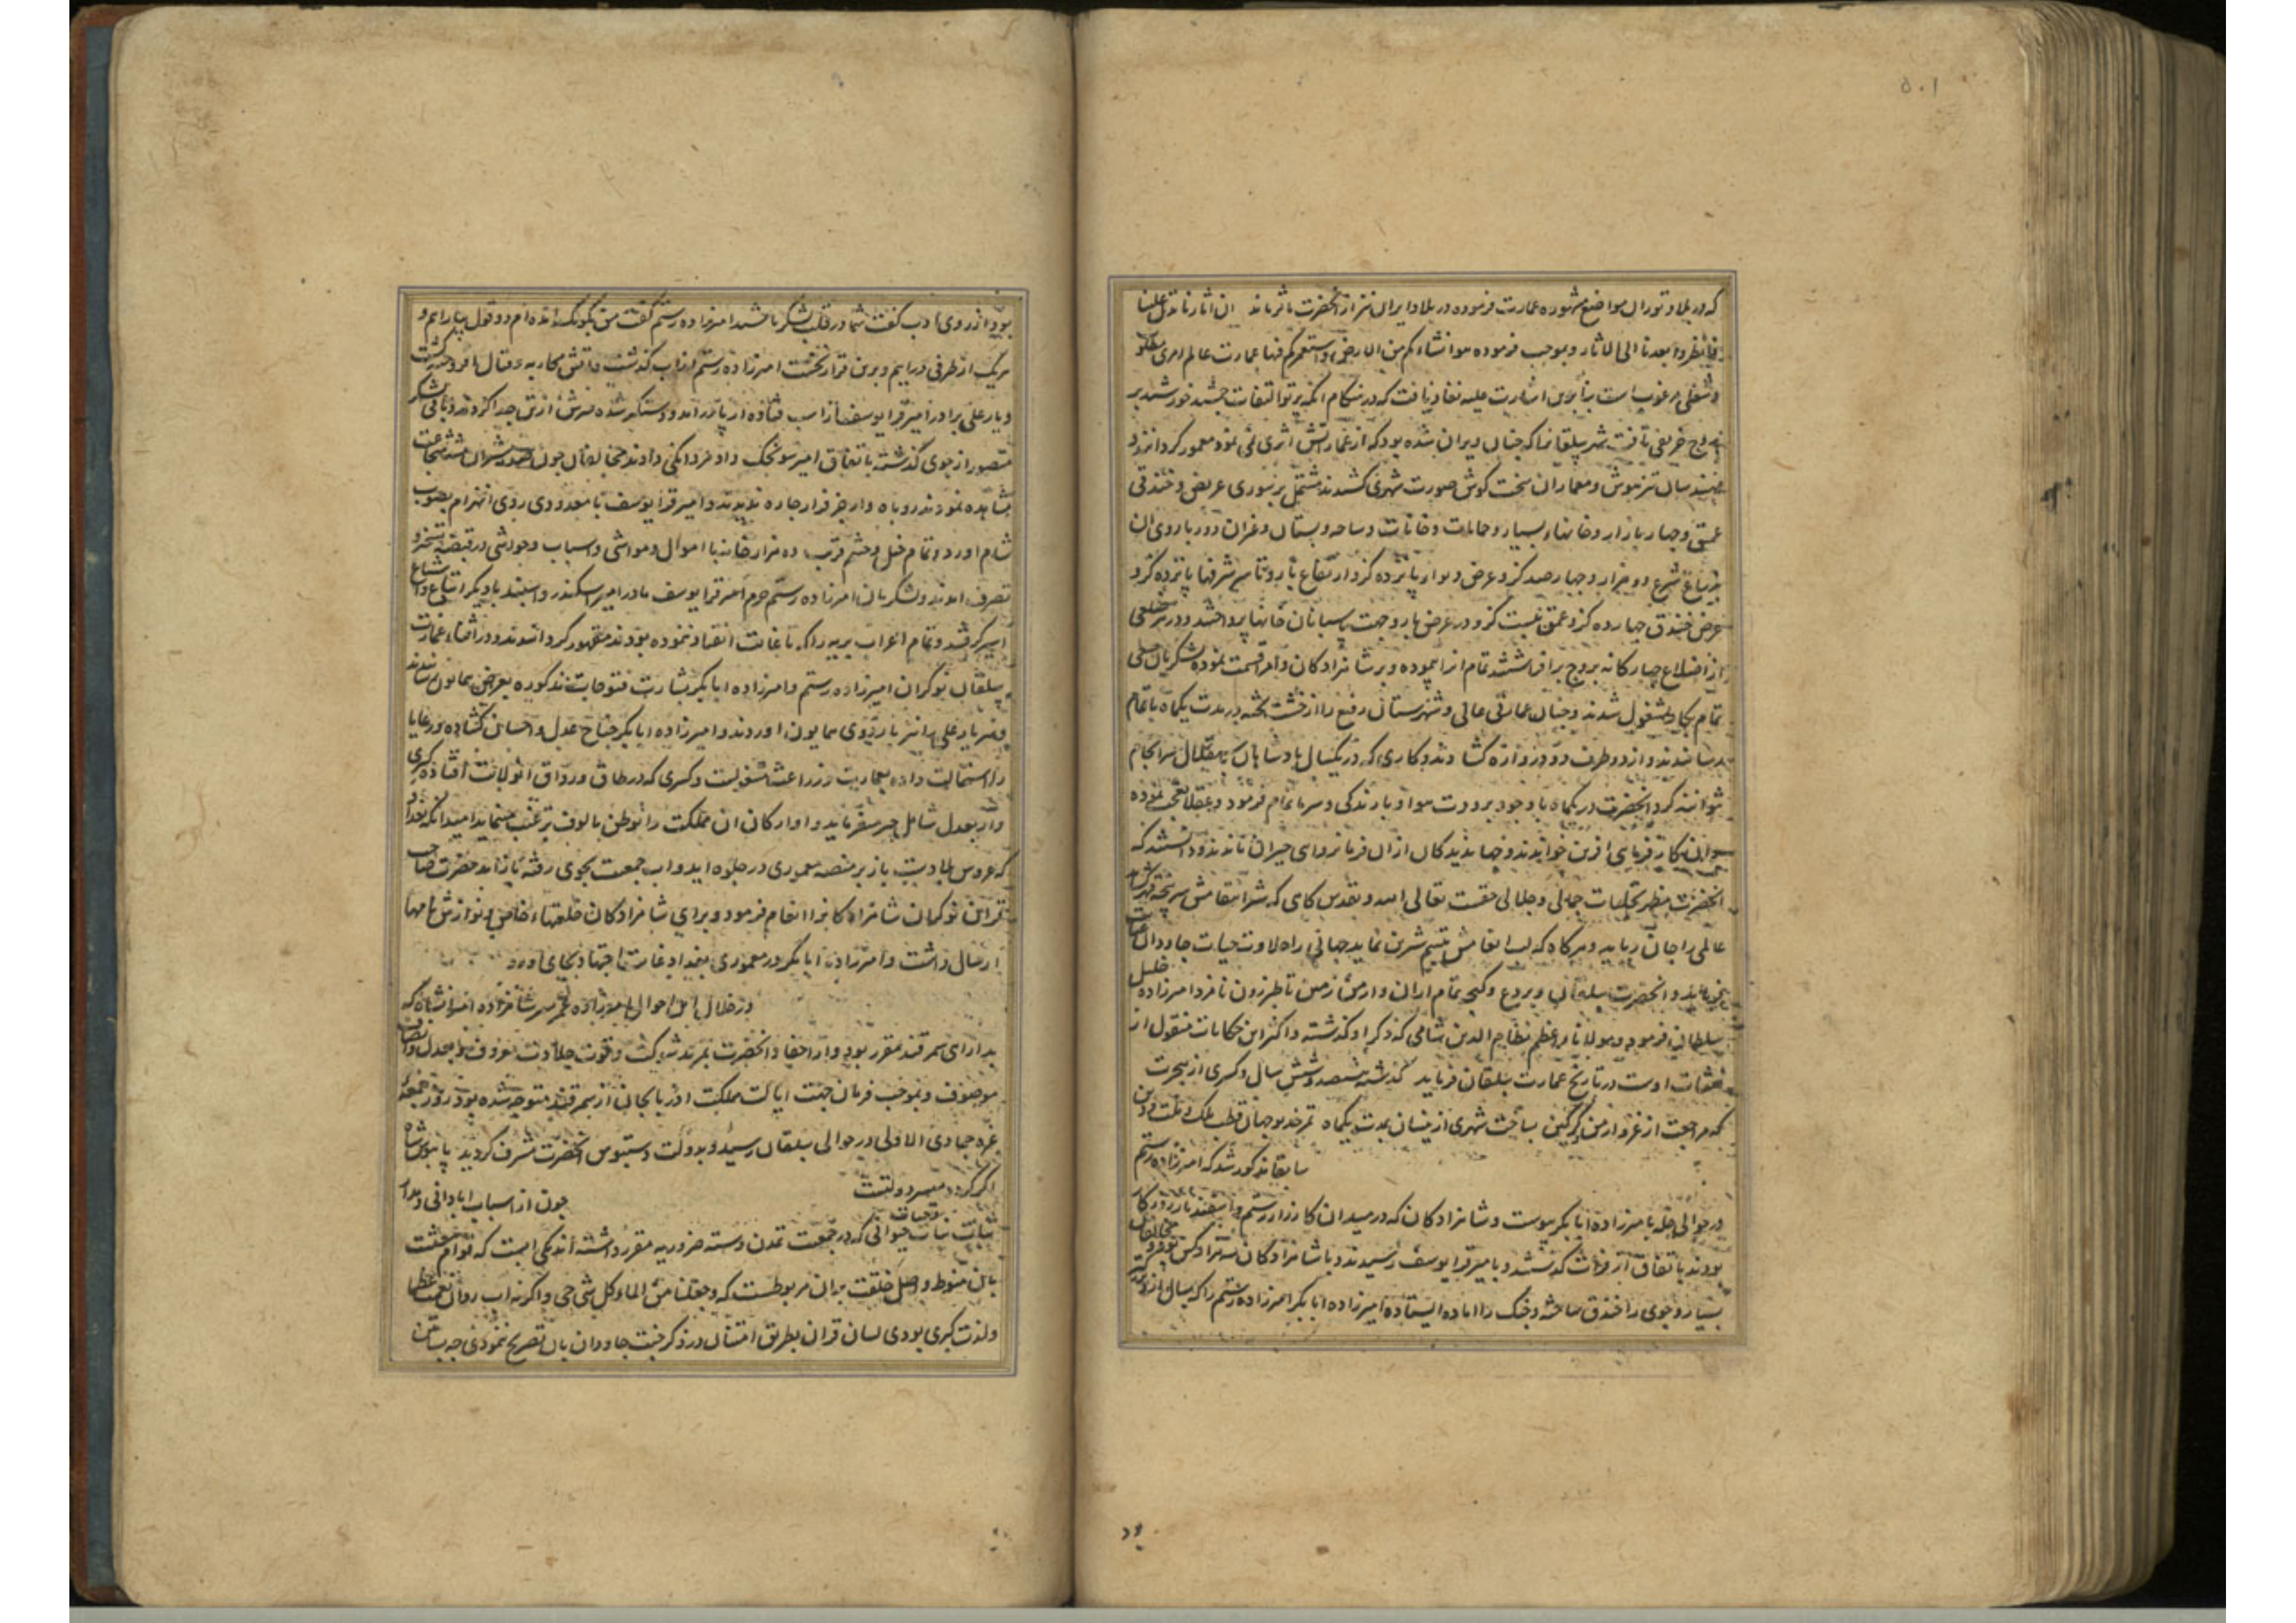 ۵۰۱
که در بلاد توران مواضع مشهوره عمارت فرموده در بلاد ایران نیز از آنحضرت ماثر ماند ان اثارنا تدل علینا
فانظروا بعدنا الی الاثار و بموجب فرموده هو انشاءکم من الارض و استعمرکم فیها عمارت عالم امری
و شغلی مرغوب است بنابرین اشارت علیه نفاذ یافت که در هنکام انکه پرتو التفات جمشید خورشید بر
بروج خریفی تافت شهر بیلقانرا که چنان ویران شده بود که از عماراتش اثری نمی نمود معمور کردانند و
مهندسان تیزهوش و معماران سخت کوش صورت شهری کشیدند مشتمل بر سوری عریض و خندقی
عمیق و چهار بازار و خانهاء بسیار و حمامات و خانات و ساحه و بستان و غیران و دور باروی ان
بذراع شرع دو هزار و چهارصد کز و عرض دیوار پانزده کز و ارتفاع بارو تا سر شرفها پانزده کز و
عرض خندق چهارده کز و عمق بیست کز و در عرض بارو جهت پاسبانان خانها پرداختند و در هر ضلعی
از اضلاع چهارکانه بروج برافراشتند تمام انرا پیموده و بر شاهزادکان و امرا قسمت نموده لشکریان
تمام بکار مشغول شدند و چنان عمارتی عالی و شهرستان رفیع را از خشت پخته در مدت یکماه باتمام
رسانیدند و از دو طرف دو دروازه کشادند و کاری که در یکسال پادشاهان باستقلال سرانجام
نتوانند کرد انحضرت در یکماه با وجود برودت هوا و بارندکی و سرما تمام فرمود و عقلا تعجب نموده
بران کارفرمای افرین خواندند و جهاندیدکان ازان فرمانروای حیران ماندند و دانستند که
انحضرت مظهر تجلیات جمالی و جلالی حضرت تعالی امد و تقدس کاهی که شرر انتقامش سر پنجه قهر کشاید
عالمی را جان رباید و هرکاه که لب انعامش تبسم شیرین نماید جهانی را حلاوت حیات جاودانی
بخشد و انحضرت بیلقان و بردع و کنجه و تمام اران و ارمن زمین تا طبرزون نامزد امیرزاده خلیل
سلطان فرمود و مولانا اعظم نظام الدین شامی که ذکر او کذشته و اکثر این حکایات منقول از
محققات اوست در تاریخ عمارت بیلقان فرماید کذشته هشتصد و شش سال و کسری از هجرت
که مراجعت از غزو ارمن و کرکین بساخت شهری از نیسان بمدت یکماه تمر خدیو جهان قطب ملک و ملت و دین
سابقا مذکور شد که امیرزاده رستم
در حوالی حله بامیرزاده ابابکر پیوست و شاهزادکان که در میدان کارزار رستم و اسفندیار روزکار
بودند باتفاق از فرات کذشتند و بامیر قرا یوسف رسیدند و با شاهزادکان سه هزار کس بود و مخالفان
بسیار و جوی را خندق ساخته و جنک را اماده ایستاده امیرزاده ابابکر امیرزاده رستم را که بسال ازو مهتر
بود
بود از روی ادب کفت شما در قلب لشکر باشید امیرزاده رستم کفت من بکومک امده ام دو قول بیاراییم و
هریک از طرفی دراییم و برین قرار نخست امیرزاده رستم از آب کذشت و اتش محاربه و قتال افروخته کشت
و یار علی برادر امیر قرا یوسف از اسب فتاده از پا درامد و دستکیر شده سرش از تن جدا کردند و باقی لشکر
منصور از جوی کذشته باتفاق امیر سونجک داد مردانکی دادند مخالفان چون شیران بیشه شجاعت
مشاهده نمودند روباه وار جز فرار چاره ندیدند و امیر قرا یوسف با معدودی روی انهزام بصوب
شام اورد و تمام خیل و حشم قریب ده هزار خانه با اموال و مواشی و اسباب و حواشی در قبضه تسخیر و
تصرف امدند و لشکریان امیرزاده رستم حرم امیر قرا یوسف مادر امیر اسکندر و اسپند با دیکر اتباع و اشیاع
اسیر کرفتند و تمام اعراب بریه را که تا غایت انقیاد ننموده بودند مقهور کردانیدند و در اثناء عمارت
بیلقان نوکران امیرزاده رستم و امیرزاده ابابکر بشارت فتوحات مذکوره بعرض همایون رسانیدند
و سر یار علی را نیز باردوی همایون اوردند و امیرزاده ابابکر جناح عدل و احسان کشاده و رعایا
را استمالت داده بعمارت و زراعت مشغولست و کسری که در طاق و رواق ان ولایت افتاده کسری
وار بعدل شامل جبر میفرماید و اوارکان ان مملکت را بوطن مالوف ترغیب مینماید امید انکه بغداد
که عروس بلادست باز بر منصه معموری در جلوه اید و اب جمعیت بجوی رفته بازاید حضرت صاحب
قران نوکران شاهزادکانرا انعام فرمود و برای شاهزادکان خلعتهاء خاص و نوازش نامها
ارسال داشت و امیرزاده ابابکر در معموری بغداد غایت اجتهاد بجای اورد
در خلال این احوال امیرزاده عمر پسر شاهزاده امیرانشاه که
بدارای سمرقند مقرر بود و از احفاد انحضرت بمزید شوکت و قوت جلادت معروف و بعدل و انصاف
موصوف و بموجب فرمان جهت ایالت مملکت اذربایجان از سمرقند متوجه شده بود روز جمعه
غره جمادی الاولی در حوالی بیلقان رسید و بدولت دستبوس انحضرت مشرف کردید پابوس شاه
اکر کردد میسر دولتست
چون از اسباب ابادانی و مدار
ثبات نبات و حیات حیوانی که در جمعیت تمدن و سته ضروریه مقرر داشته اند یکی ابست که قوام خلقت
بان منوط و اصل خلقت بدان مربوطست که و جعلنا من الماء کل شی حی و اکر نه اب روان نعمت عظما
ولذت کبری بودی لسان قران بطریق امتنان در ذکر جنت جاودان بان تصریح ننمودی چه بساتین